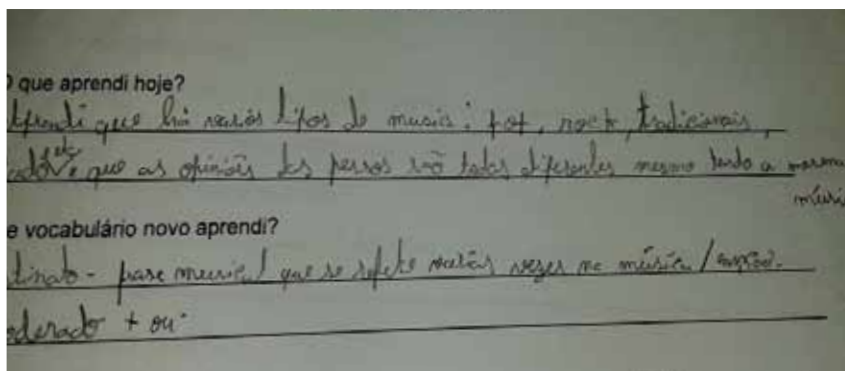 que aprendi hoje?
Aprendi que há varios tipos de musica: pop, rock, tradicionais,
etc
que as opiniões das pessoas são todas diferentes mesmo tendo a mesma
músi
e vocabulário novo aprendi?
tinato - frase musical que se repete varias vezes na música / canção.
oderado + ou -